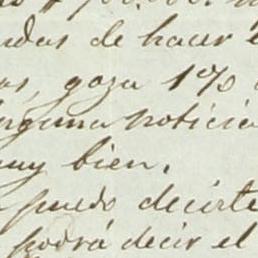 $ 700.000.
ndas de hacer
as, goza 1%
inguna noticia
muy bien.
puedo decirte
podrá decir el